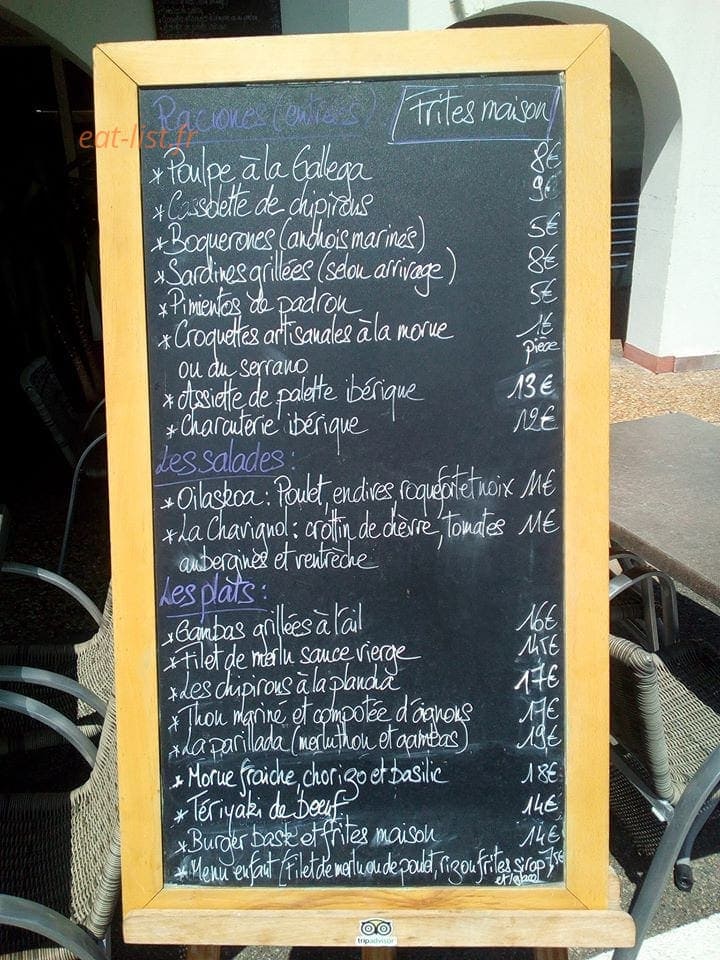 Raciones (entiers) Frites maison
eat-list.fr
* Poulpe à la Gallega 8€
* Cassolette de chipirons 9€
* Boquerones (anchois marinés) 5€
* Sardines grillées (selon arrivage) 8€
* Pimientos de padron 5€
* Croquettes artisanales à la morue 1€
pièce
ou au serrano
* Assiette de palette ibérique 13€
* Charcuterie ibérique 12€
Les salades :
* Oilaskoa : Poulet, endives, roquefort et noix 11€
* La Chavignol : crottin de chèvre, tomates 11€
aubergines et ventrèche
Les plats :
* Gambas grillées à l'ail 16€
* Filet de merlu sauce vierge 14€
* Les chipirons à la plancha 17€
* Thon mariné et compotée d'oignons 17€
* La parillada (merlu thon et gambas) 19€
* Morue fraiche, chorizo et basilic 18€
* Tériyaki de boeuf 14€
* Burger bask et frites maison 14€
* Menu enfant (Filet de merlu ou de poulet, riz ou frites sirop
tripadvisor